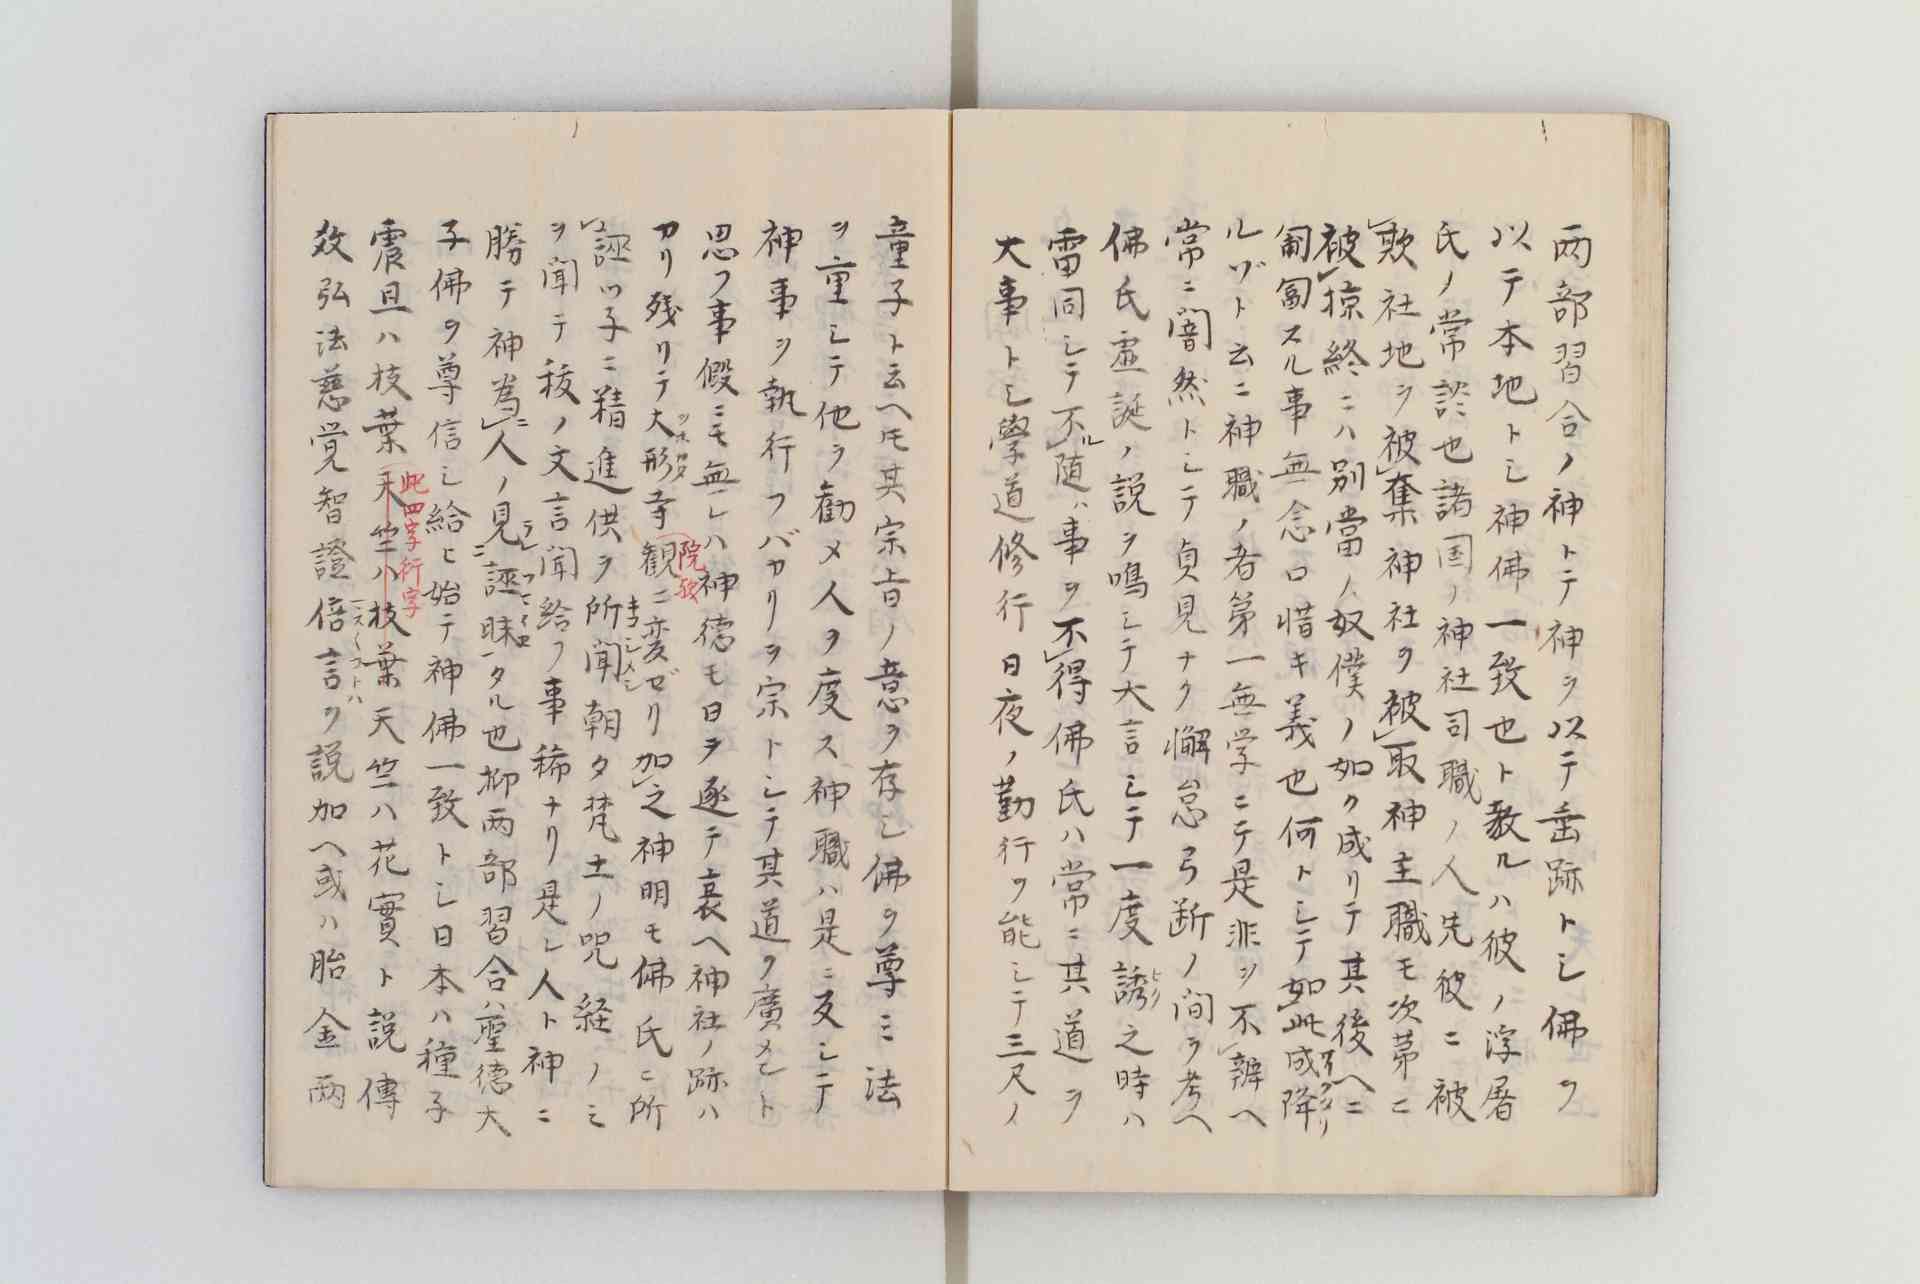 両部習合ノ神トテ神ヲ以テ垂跡トシ佛ヲ
以テ本地トシ神佛一致也ト教ルハ彼ノ浮屠
氏ノ常談也諸国ノ神社司職ノ人先彼ニ被
欺社地ヲ被奪神社ヲ被取神主職モ次第ニ
被掠終ニハ別當ノ奴僕ノ如ク成リテ其後ヘニ
匍匐スル事無念口惜キ義也何トシテ如此成降
ルゾト云ニ神職ノ者第一無学ニテ是非ヲ不辨ヘ
常ニ闇然トシテ貞見ナク懈怠弓断ノ間ヲ考ヘ
佛氏虚誕ノ説ヲ鳴シテ大言シテ一度誘之時ハ
雷同シテ不ル随ハ事ヲ不得佛氏ハ常ニ其道ヲ
大事トシ學道修行日夜ノ勤行ヲ能シテ三尺ノ
童子ト云ヘ𪜈其宗旨ノ意ヲ存シ佛ヲ尊ミ法
ヲ重シテ他ヲ勸メ人ヲ度ス神職ハ是ニ反シテ
神事ヲ執行フバカリヲ宗トシテ其道ヲ廣メント
思フ事假ニモ無レハ神徳モ日ヲ逐テ衰ヘ神社ノ跡ハ
カリ残リテ大形寺観ニ変ゼリ加之神明モ佛氏ニ所
院歟
誣ツ子ニ精進供ヲ所聞朝夕梵土ノ咒経ノミ
ヲ聞テ秡ノ文言聞給フ事稀ナリ是レ人ト神ニ
勝テ神為ニ人ノ見ラレニ誣眛タル也抑両部習合ハ聖徳大
子佛ヲ尊信シ給ヒ始テ神佛一致トシ日本ハ種子
震旦ハ枝葉天竺ハ枝葉天竺ハ花實ト説傳
此四字衍字
教弘法慈覚智證倍言ヲ説加ヘ或ハ胎金両